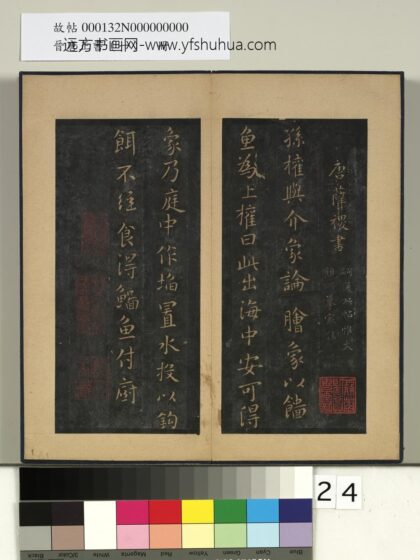 故帖 000132N000000000
远方书画网-www.yfshuhua.com
唐薛稷書
孫權與介象論鱠象以鯔
魚為上權曰此出海中安可得
象乃庭中作埳置水投以鉤
餌不經食得鯔魚付廚
24
Blue
Cyan
Green
Yellow
Red
Magenta
White
3/Color
Black